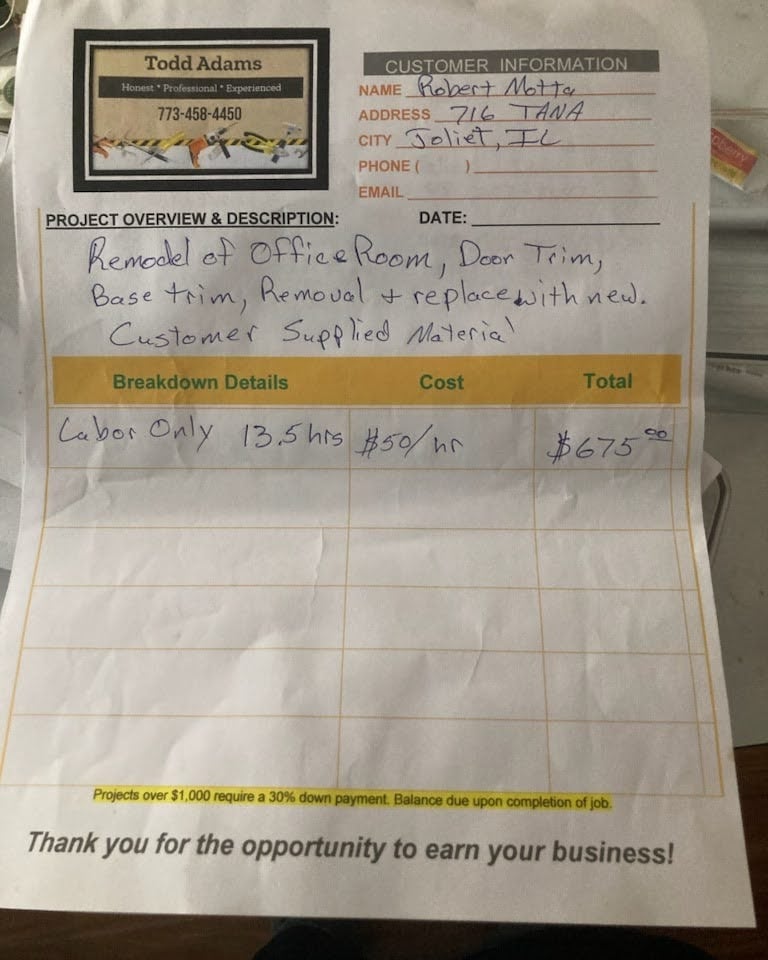 Todd Adams
Honest * Professional * Experienced
773-458-4450
CUSTOMER INFORMATION
NAME Robert Motta
ADDRESS 716 TANA
CITY Joliet, IL
PHONE ( )
EMAIL
PROJECT OVERVIEW & DESCRIPTION: DATE:
Remodel of Office Room, Door Trim,
Base trim, Removal + replace with new.
Customer Supplied Material
Breakdown Details Cost Total
Labor Only 13.5 hrs $50/hr $675 00
Projects over $1,000 require a 30% down payment. Balance due upon completion of job.
Thank you for the opportunity to earn your business!